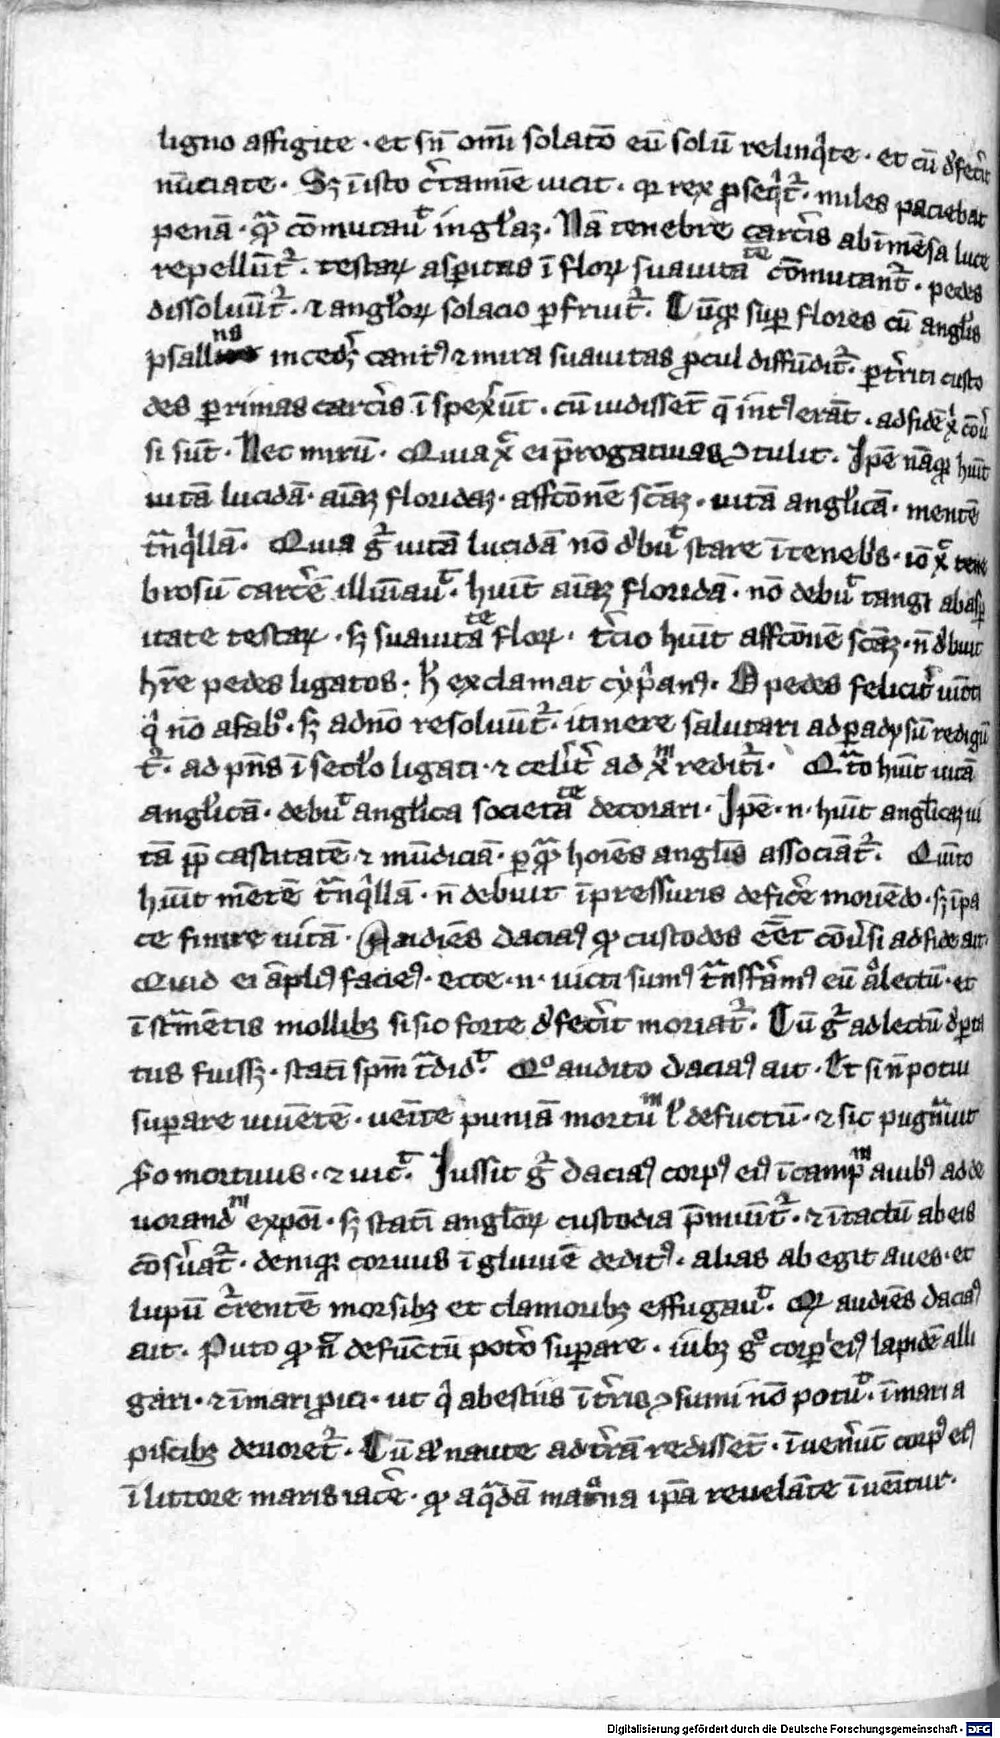 ligno affigite · et sn̄ om̄i solatō eū solū relinqͥte · et cū defec̄it
nūciate · Sꝫ ī isto c̄tamīe uicit · qꝛ rex ꝓseqͥt᷑ · miles paciebat᷑
penā · qᷓ cōmutauͭ in gl̄aꝫ · Nā tenebre carc̄is ab īmēsa luce
repellūt᷑ · testaꝝ asꝑitas ī floꝝ suauitaᵗᵉ cōmutant᷑ · pedes
dissoluūt᷑ · ⁊ angl̄oꝝ solacio ꝑfruit᷑ · Cūqꝫ suꝑ flores cū angl̄is
psallⁿˢ incedꝫ cantꝰ ⁊ mira suauitas ꝓcul diffūdit᷑ · ꝑt̄riti custo
des ꝑ rimas carc̄is īspexͬūt · cū uidissēt q̄ intꝰ erāt · ad fidē xͥ cōuͥ
si sūt · Nec mirū · Quia xͨ ei p̄rogatiuas ꝯtulit · Ip̄e nāqꝫ huīt
uitā lucidā · aīaꝫ floridaꝫ · affcōnē sc̄aꝫ · uitā angl̄icā · mentē
t̄nqͥllā · Quia gͦ uitā lucidā nō debuͭ stare ī tenebͥs · iō xͨ tene
brosū carcͤē illuīauͭ · huīt aīaꝫ floridā · nō debuͭ tangi ab asꝑ
itate testaꝝ · sꝫ suauitaᵗᵉ floꝝ · tͨio huīt affcōnē sc̄aꝫ · n̄ debuit
hr̄e pedes ligatos · h̄ exclamat cypͥanꝰ · O pedes felicitͬ uīcti
qͥ nō a fabͦ · sꝫ a dn̄o resoluūt᷑ · itinere salutari ad ꝑadysū redigū
t᷑ · ad pn̄s ī sec̄lo ligati · ⁊ cel̄itͬ ad xᵐ redit̄i · Qᷓto huīt uitā
angl̄icā · debuͭ angl̄ica societaᵗᵉ decorari · Ip̄e · n · huīt angl̄icaꝫ ui
tā ꝓp̄ castitatē ⁊ mūdiciā · ꝑ qᷓ hoīes angl̄is associāt᷑ · Quīto
huīt mētē t̄nqͥllā · n̄ debuit ī pressuris deficͤe moriēdo · sꝫ ī pa
ce finire uitā · Audiēs dacianꝰ qꝫ custodes ēēt cōuͥsi ad fidē ait ·
Quid ei āplꝰ faciemꝰ · ecce · n · uicti sumꝰ t̄nsfͣamꝰ eū aͩ lectū · et
ī stͣmētis mollibꝫ si sic forte defec̄it moriat᷑ · Cū gͦ ad lectū deꝑta
tus fuissꝫ · statī spm̄ tͣdidͭ · Qͦ audito dacianꝰ ait · Et si n̄ potui
suꝑare uiuētē · uel̄ite puniā mortuᵐ ul̄ defūctū · ⁊ sic pugᷓuit
ꝓ mortuus · ⁊ uicͭ · Iussit gͦ dacianꝰ corpꝰ eiꝰ ī campuᵐ auibꝰ ad de
uoranduᵐ expōi · sꝫ statī angl̄oꝝ custodia p̄muīt᷑ · ⁊ ītactū ab eis
cōsͬuat᷑ · deniqꝫ coruus ī gluuiē deditꝰ · alias abegit aues · et
lupū cͬrentē morsibꝫ et clamoribꝫ effugauͭ · Qꝛ audiēs dacianꝰ
ait · Puto qꝫ n̄ defūctū potͬo suꝑare · iubꝫ gͦ corpͥ eiꝰ lapidē alli
gari · ⁊ ī mari ꝓici · ut qͥ a bestiis ī tͬris ꝯsumi nō potuͭ · ī mari a
piscibꝫ deuoret᷑ · Cū aͧ naute ad t̄rā redissēt · īuenͬūt corpꝰ eiꝰ
ī littore maris iacͤe · qꝫ a qᷓdā matͬna ip̄a reuelāte īuēitur ·
Digitalisierung gefördert durch die Deutsche Forschungsgemeinschaft - DFG